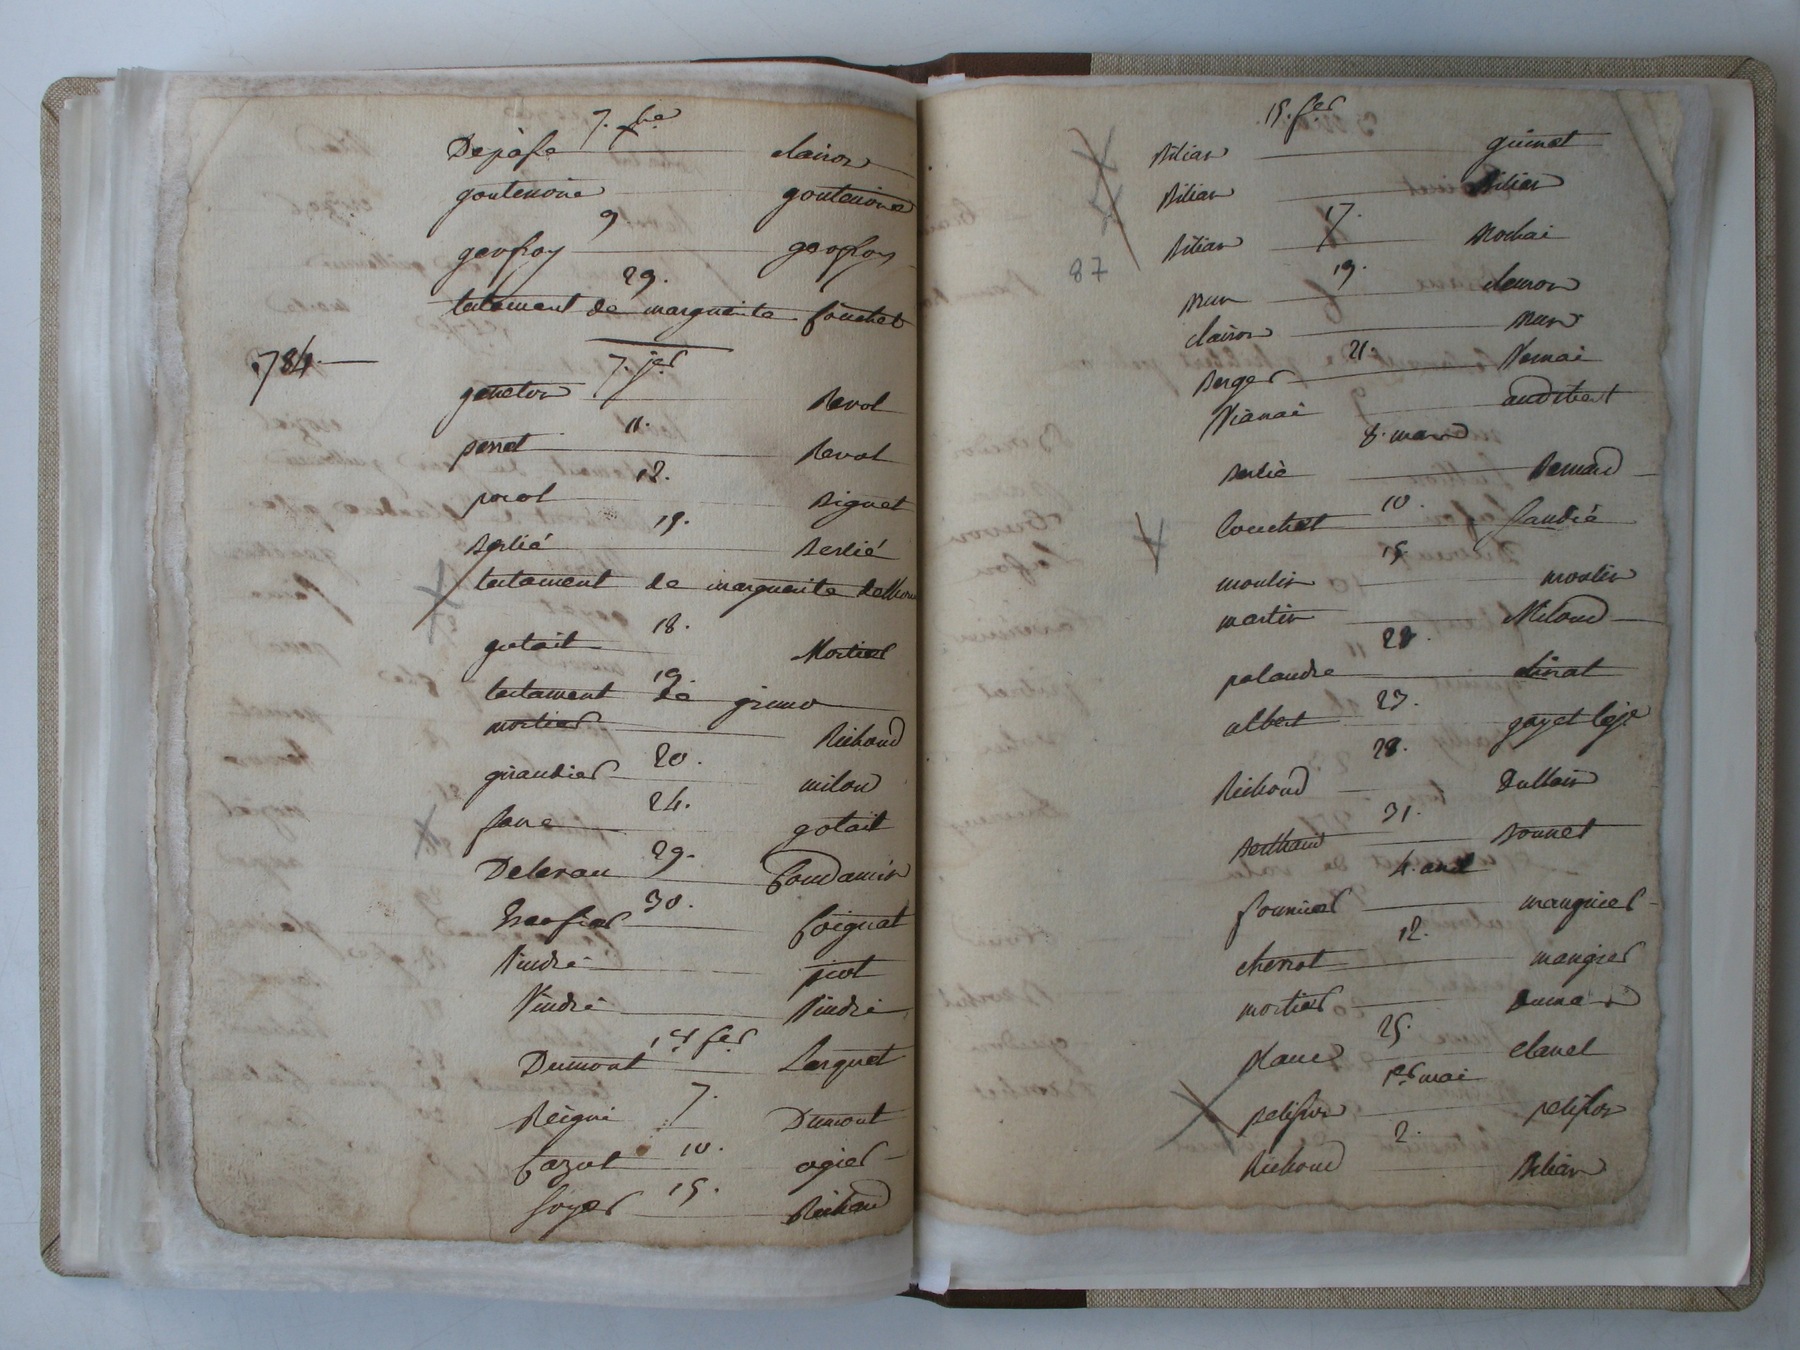 7. bre
Dejafe clairon
goutenoire goutenoire
9
geoffroy geoffroy
29.
testament de marguerite fouchet
784.
7. jer
geneton Revol
11.
perret Revol
12.
porot Biguet
19.
Berlié Berlié
testament de marguerite
18.
gotait Mortier
19.
testament de grimo
mortier Richoud
20.
giraudier milou
24.
faure gotait
29.
30.
Coignat
Vindre picot
Vindre Vindre
1er fer
Dumont Larguet
7.
Reigni Dumont
10.
Cazot ogier
15.
foyer Richoud
15. fer
Bilian guinet
Bilian Bilian
17.
Bilian Rochai
87
19.
Brun clairon
clairon Brun
21.
Berger Vernai
Vianai audibert
8. mars
Berlié Bernard
10.
Couchet
15.
moulin moulin
martin Miloud
22.
palandre dinat
23.
albert
28.
Richoud
31.
Berthaud Bonnet
4. avril
fournier manguier
12.
cherrot mangier
mortier
25.
Place clavel
1er mai
pelisson pelisson
2.
Richoud Bilian